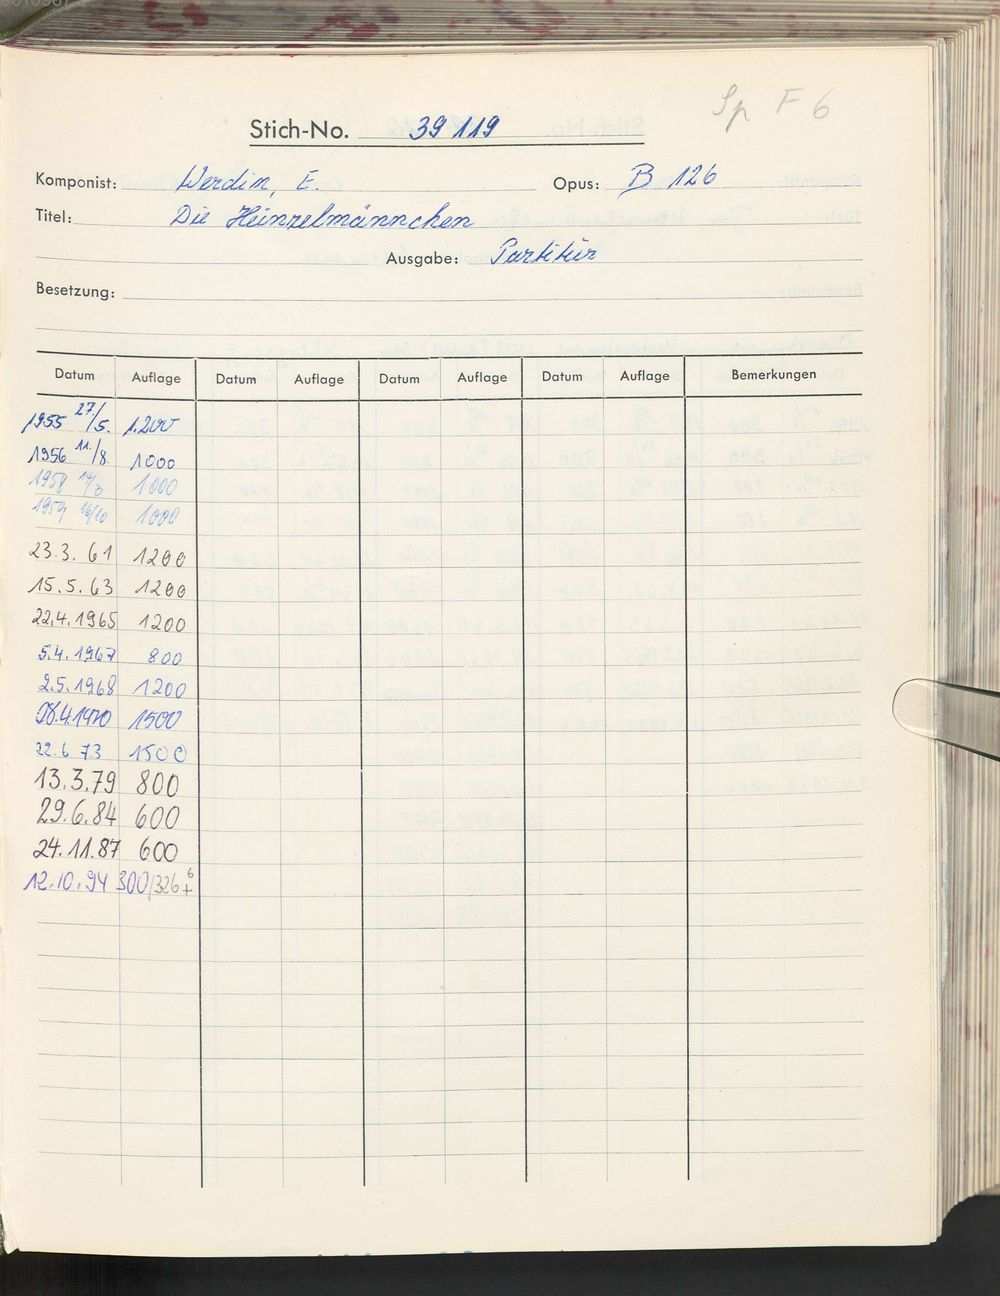 Sp F 6
Stich-No. 39 119
Komponist: Werdin, E. Opus: B 126
Titel: Die Heinzelmännchen
Ausgabe: Partitur
Besetzung:
Datum Auflage Datum Auflage Datum Auflage Datum Auflage Bemerkungen
1955 27/5. 1.200
1956 11./8. 1000
1958 1000
1959 16/10 1000
23.3. 61 1200
15.5.63 1200
22.4.1965 1200
5.4.1967 800
2.5.1968 1200
28.4.1970 1500
22.6 73 1500
13.3.79 800
29.6.84 600
24.11.87 600
12.10.94 300/326+6